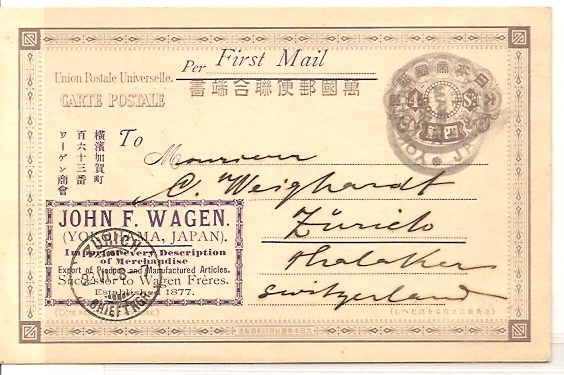 Per First Mail
Union Postale Universelle.
CARTE POSTALE
書端合聯便郵國萬
大日本帝國郵便
4 Sn
四錢
YOKO JAPAN
To
横濱加賀町
百六十三番
ワーゲン商會
Monsieur
C. Weighardt
Zürich
Thalaker
Switzerland
JOHN F. WAGEN.
(YOKOHAMA, JAPAN).
Import every Description
of Merchandise
Export of Produce and Manufactured Articles.
Successor to Wagen Frères.
Established 1877.
ZÜRICH
VI
BRIEFTRG
(CÔTÉ RÉSERVÉ